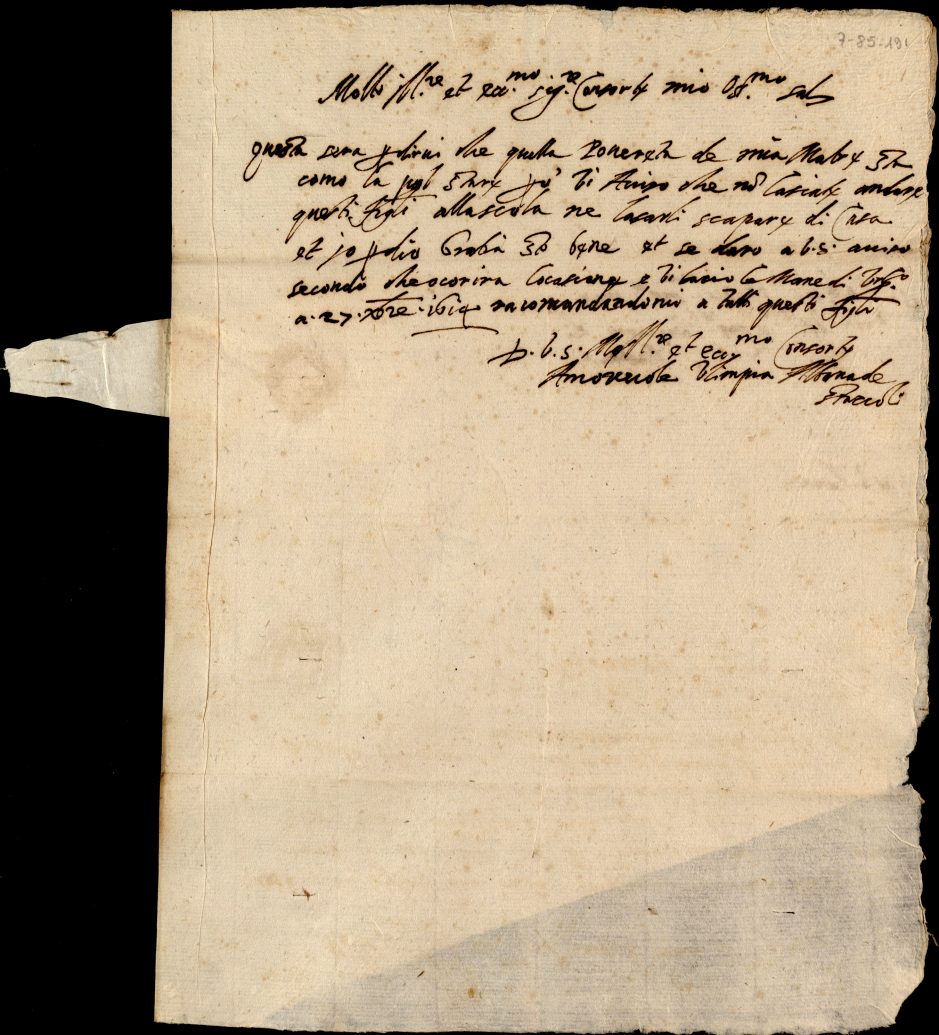 7-85-191
Molto Ill.re et ecc.mo sig.re Consorte mio Oss.mo sal
questa sera p dirvi che quella Povereta de mia Matre sta
como la pol stare po vi Aviso che nō lasiate andare
questi figli alla scola ne lasarli scapare di Casa
et io p dio gratia sto bene et se daro a v.s. aviso
secondo che ocorira locasione e vi bacio le Mane di
a 27 xbre 1614 racomandandomi a tutti questi figli
D. v. s. Mo Ill.re et ecc.mo Consorte
Amorevole Olimpia Albana de
Staccoli